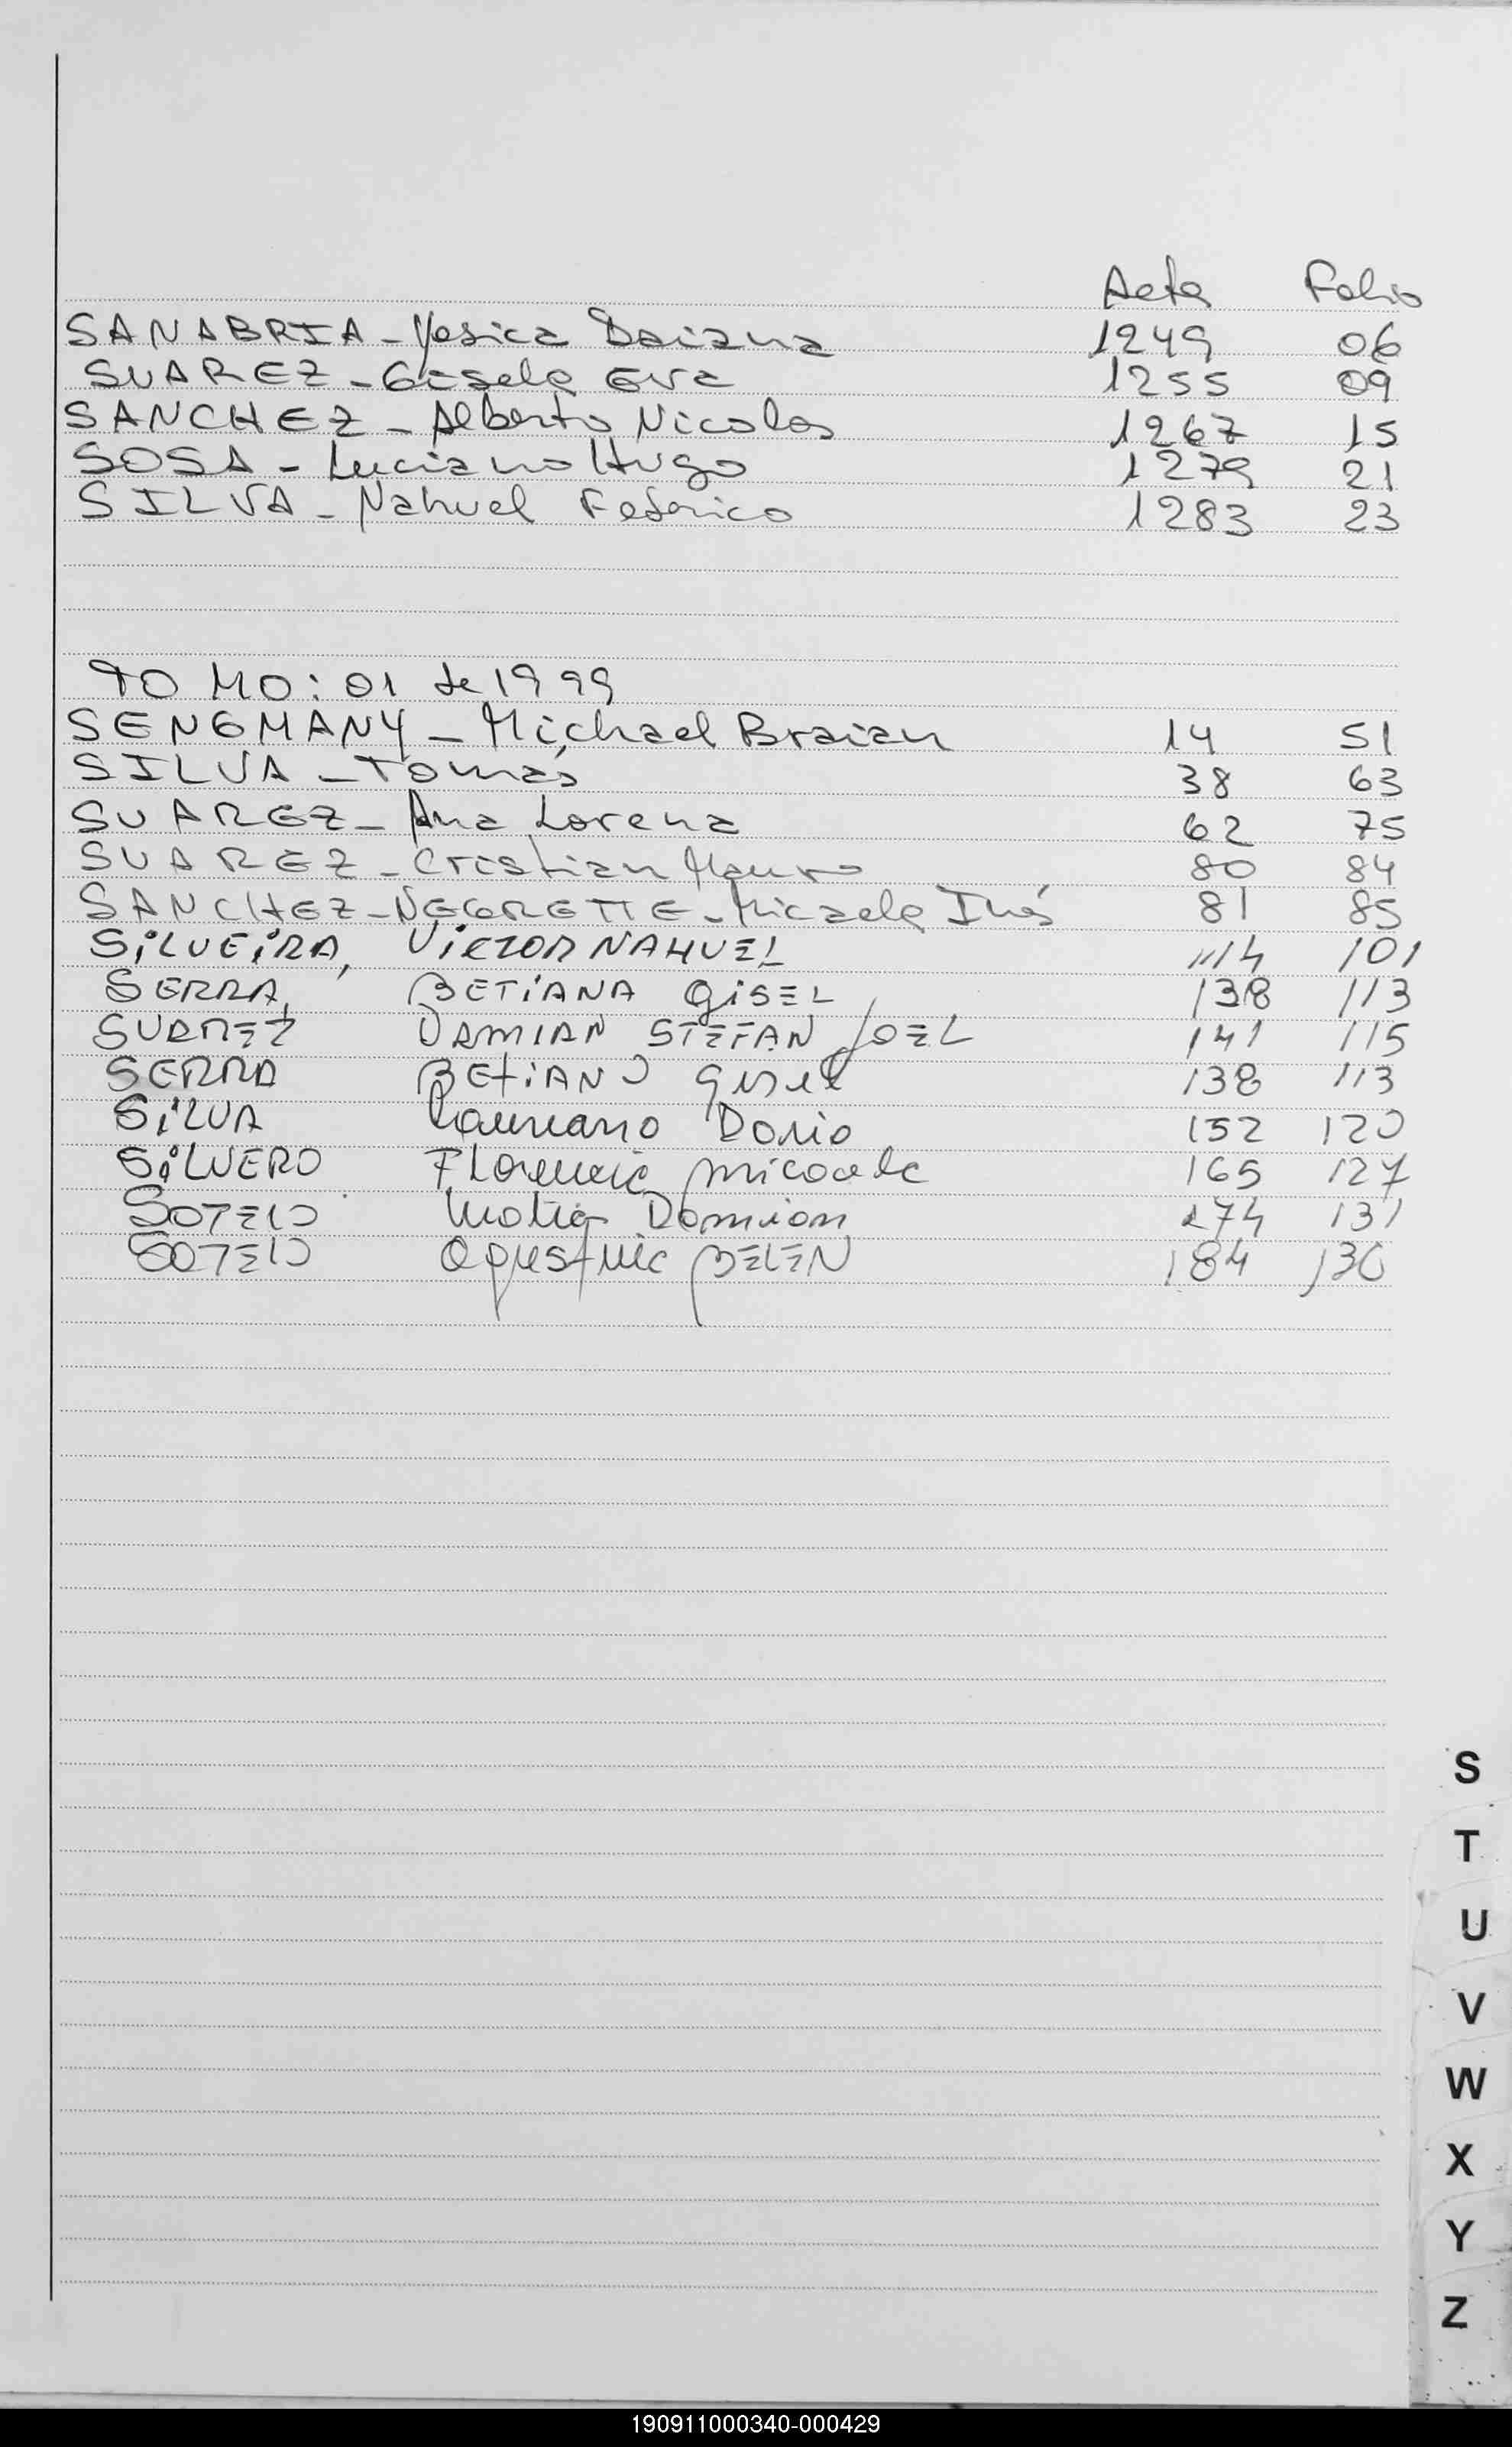 Acta Folio
SANABRIA - Yesica Daiana 1249 06
SUAREZ - Gisela Eva 1255 09
SANCHEZ - Alberto Nicolas 1267 15
SOSA - Luciano Hugo 1279 21
SILVA - Nahuel Federico 1283 23
TOMO: 01 de 1999
SENGMANY - Michael Braian 14 51
SILVA - Tomás 38 63
SUAREZ - Ana Lorena 62 75
SUAREZ - Cristian Mauro 80 84
SANCHEZ - NEGRETTE - Micaela Inés 81 85
SiLVEiRA, ViCTOR NAHUEL 114 101
SERRA, BETiANA GiSEL 138 113
SUAREZ DAMIAN STEFAN JOEL 141 115
SERRA BETiANA Gisel 138 113
SiLVA Laureano Dario 152 120
SiLVERO Florencia Micaela 165 127
SOTELO Matias Damian 174 131
SOTELO Agustina BELEN 184 136
S
T
U
V
W
X
Y
Z
190911000340-000429